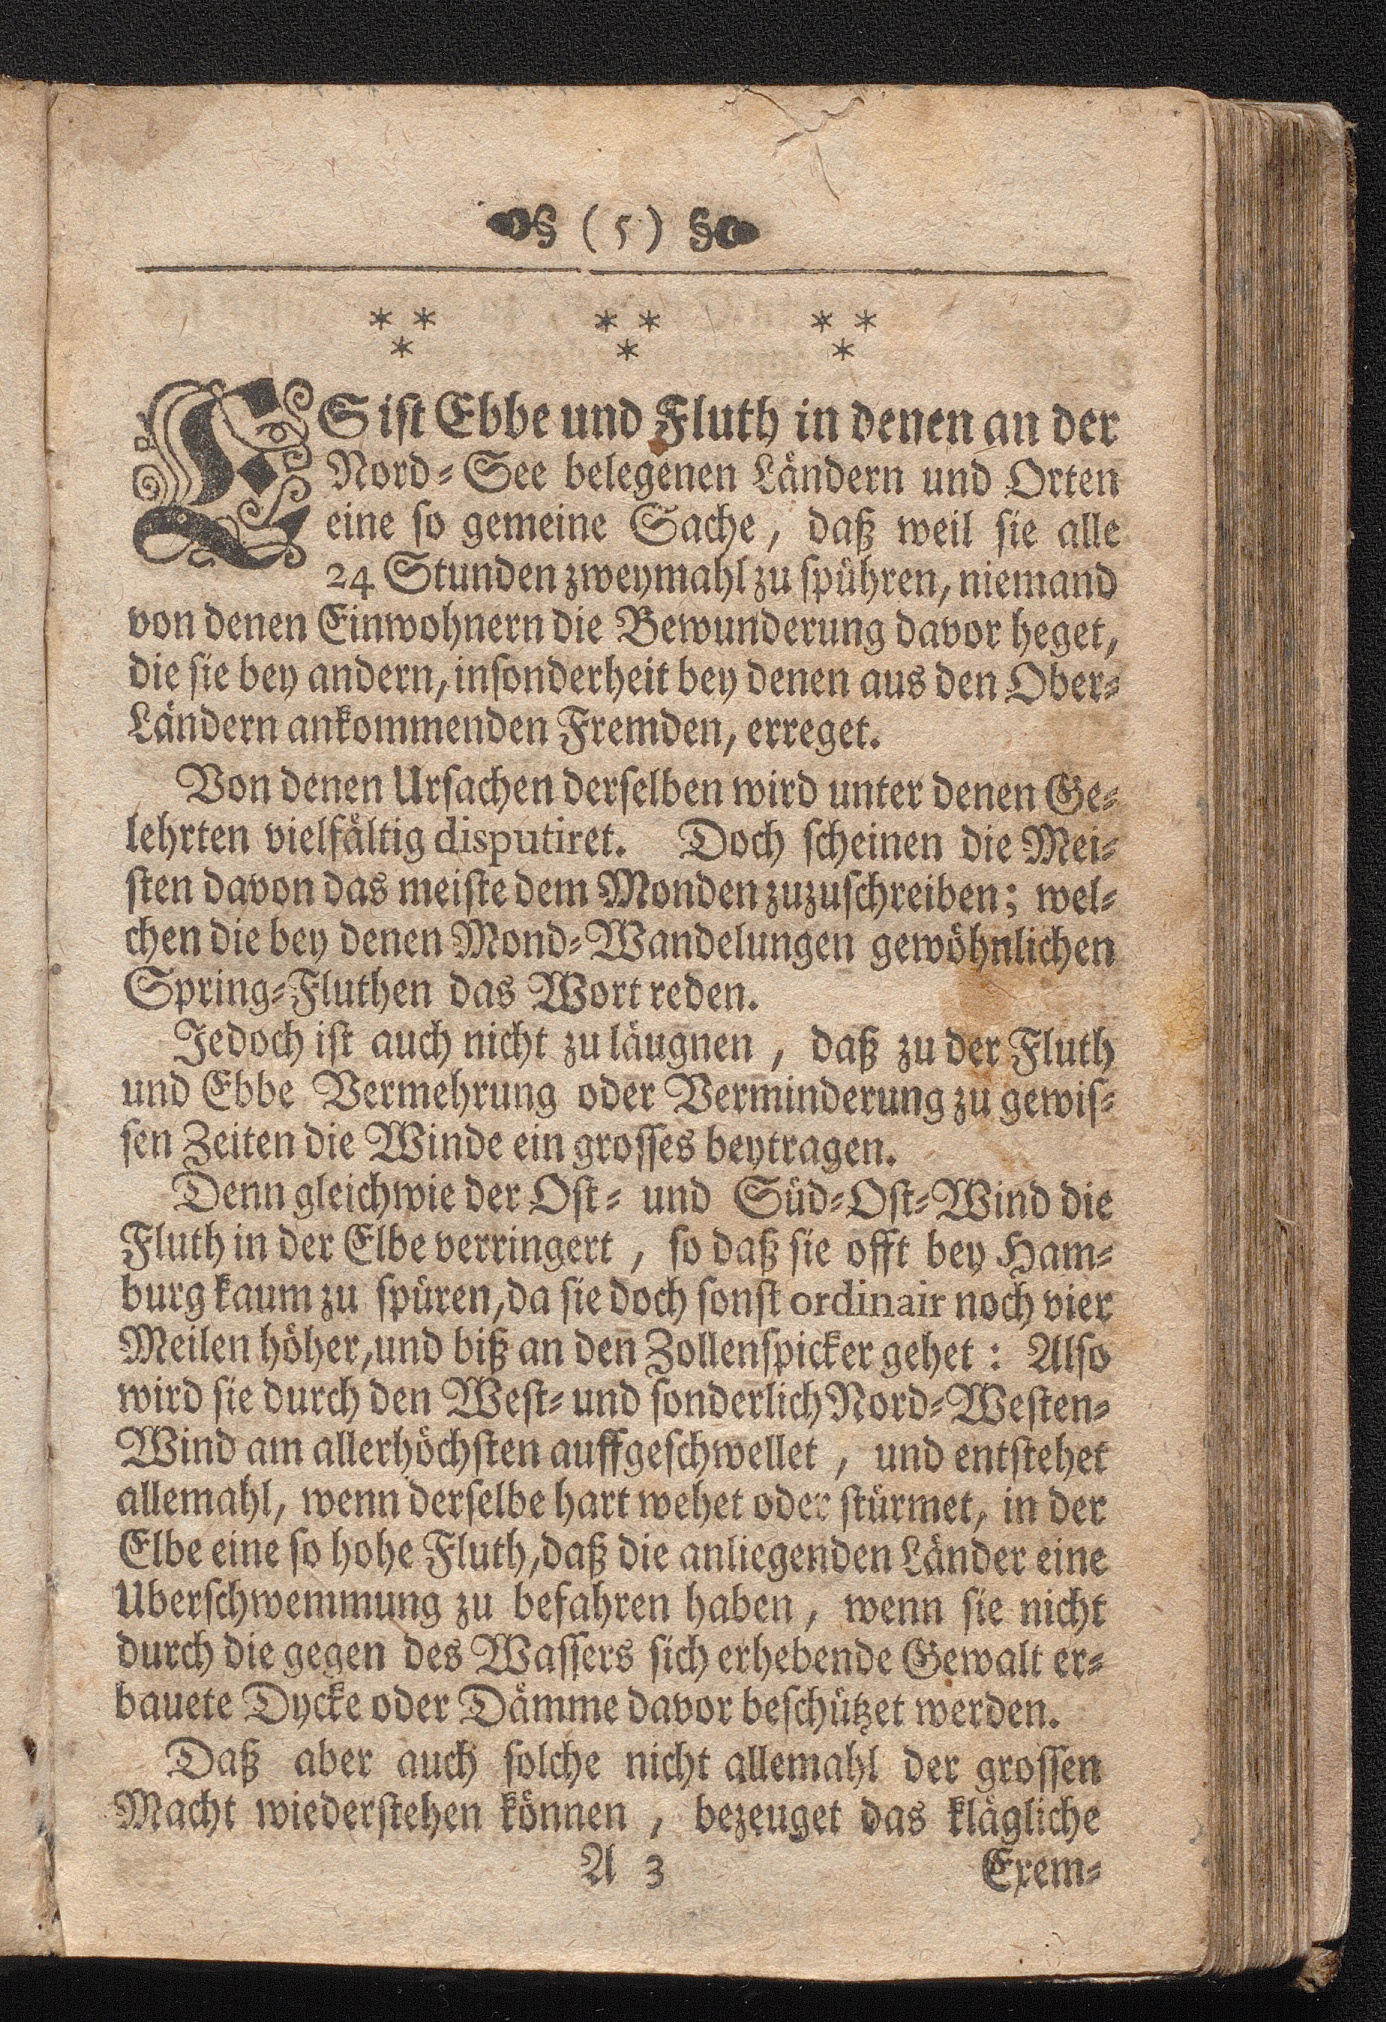 ( 5 )
* * * * * *
* * *
ES ist Ebbe und Fluth in denen an der
Nord-See belegenen Ländern und Orten
eine so gemeine Sache, daß weil sie alle
24 Stunden zweymahl zu spühren, niemand
von denen Einwohnern die Bewunderung davor heget,
die sie bey andern, insonderheit bey denen aus den Ober-
Ländern ankommenden Fremden, erreget.
Von denen Ursachen derselben wird unter denen Ge-
lehrten vielfältig disputiret. Doch scheinen die Mei-
sten davon das meiste dem Monden zuzuschreiben; wel-
chen die bey denen Mond-Wandelungen gewöhnlichen
Spring-Fluthen das Wort reden.
Jedoch ist auch nicht zu läugnen, daß zu der Fluth
und Ebbe Vermehrung oder Verminderung zu gewis-
sen Zeiten die Winde ein grosses beytragen.
Denn gleichwie der Ost- und Süd-Ost-Wind die
Fluth in der Elbe verringert, so daß sie offt bey Ham-
burg kaum zu spüren, da sie doch sonst ordinair noch vier
Meilen höher, und biß an den Zollenspicker gehet: Also
wird sie durch den West- und sonderlich Nord-Westen-
Wind am allerhöchsten auffgeschwellet, und entstehet
allemahl, wenn derselbe hart wehet oder stürmet, in der
Elbe eine so hohe Fluth, daß die anliegenden Länder eine
Uberschwemmung zu befahren haben, wenn sie nicht
durch die gegen des Wassers sich erhebende Gewalt er-
bauete Dycke oder Dämme davor beschützet werden.
Daß aber auch solche nicht allemahl der grossen
Macht wiederstehen können, bezeuget das klägliche
A 3 Exem-